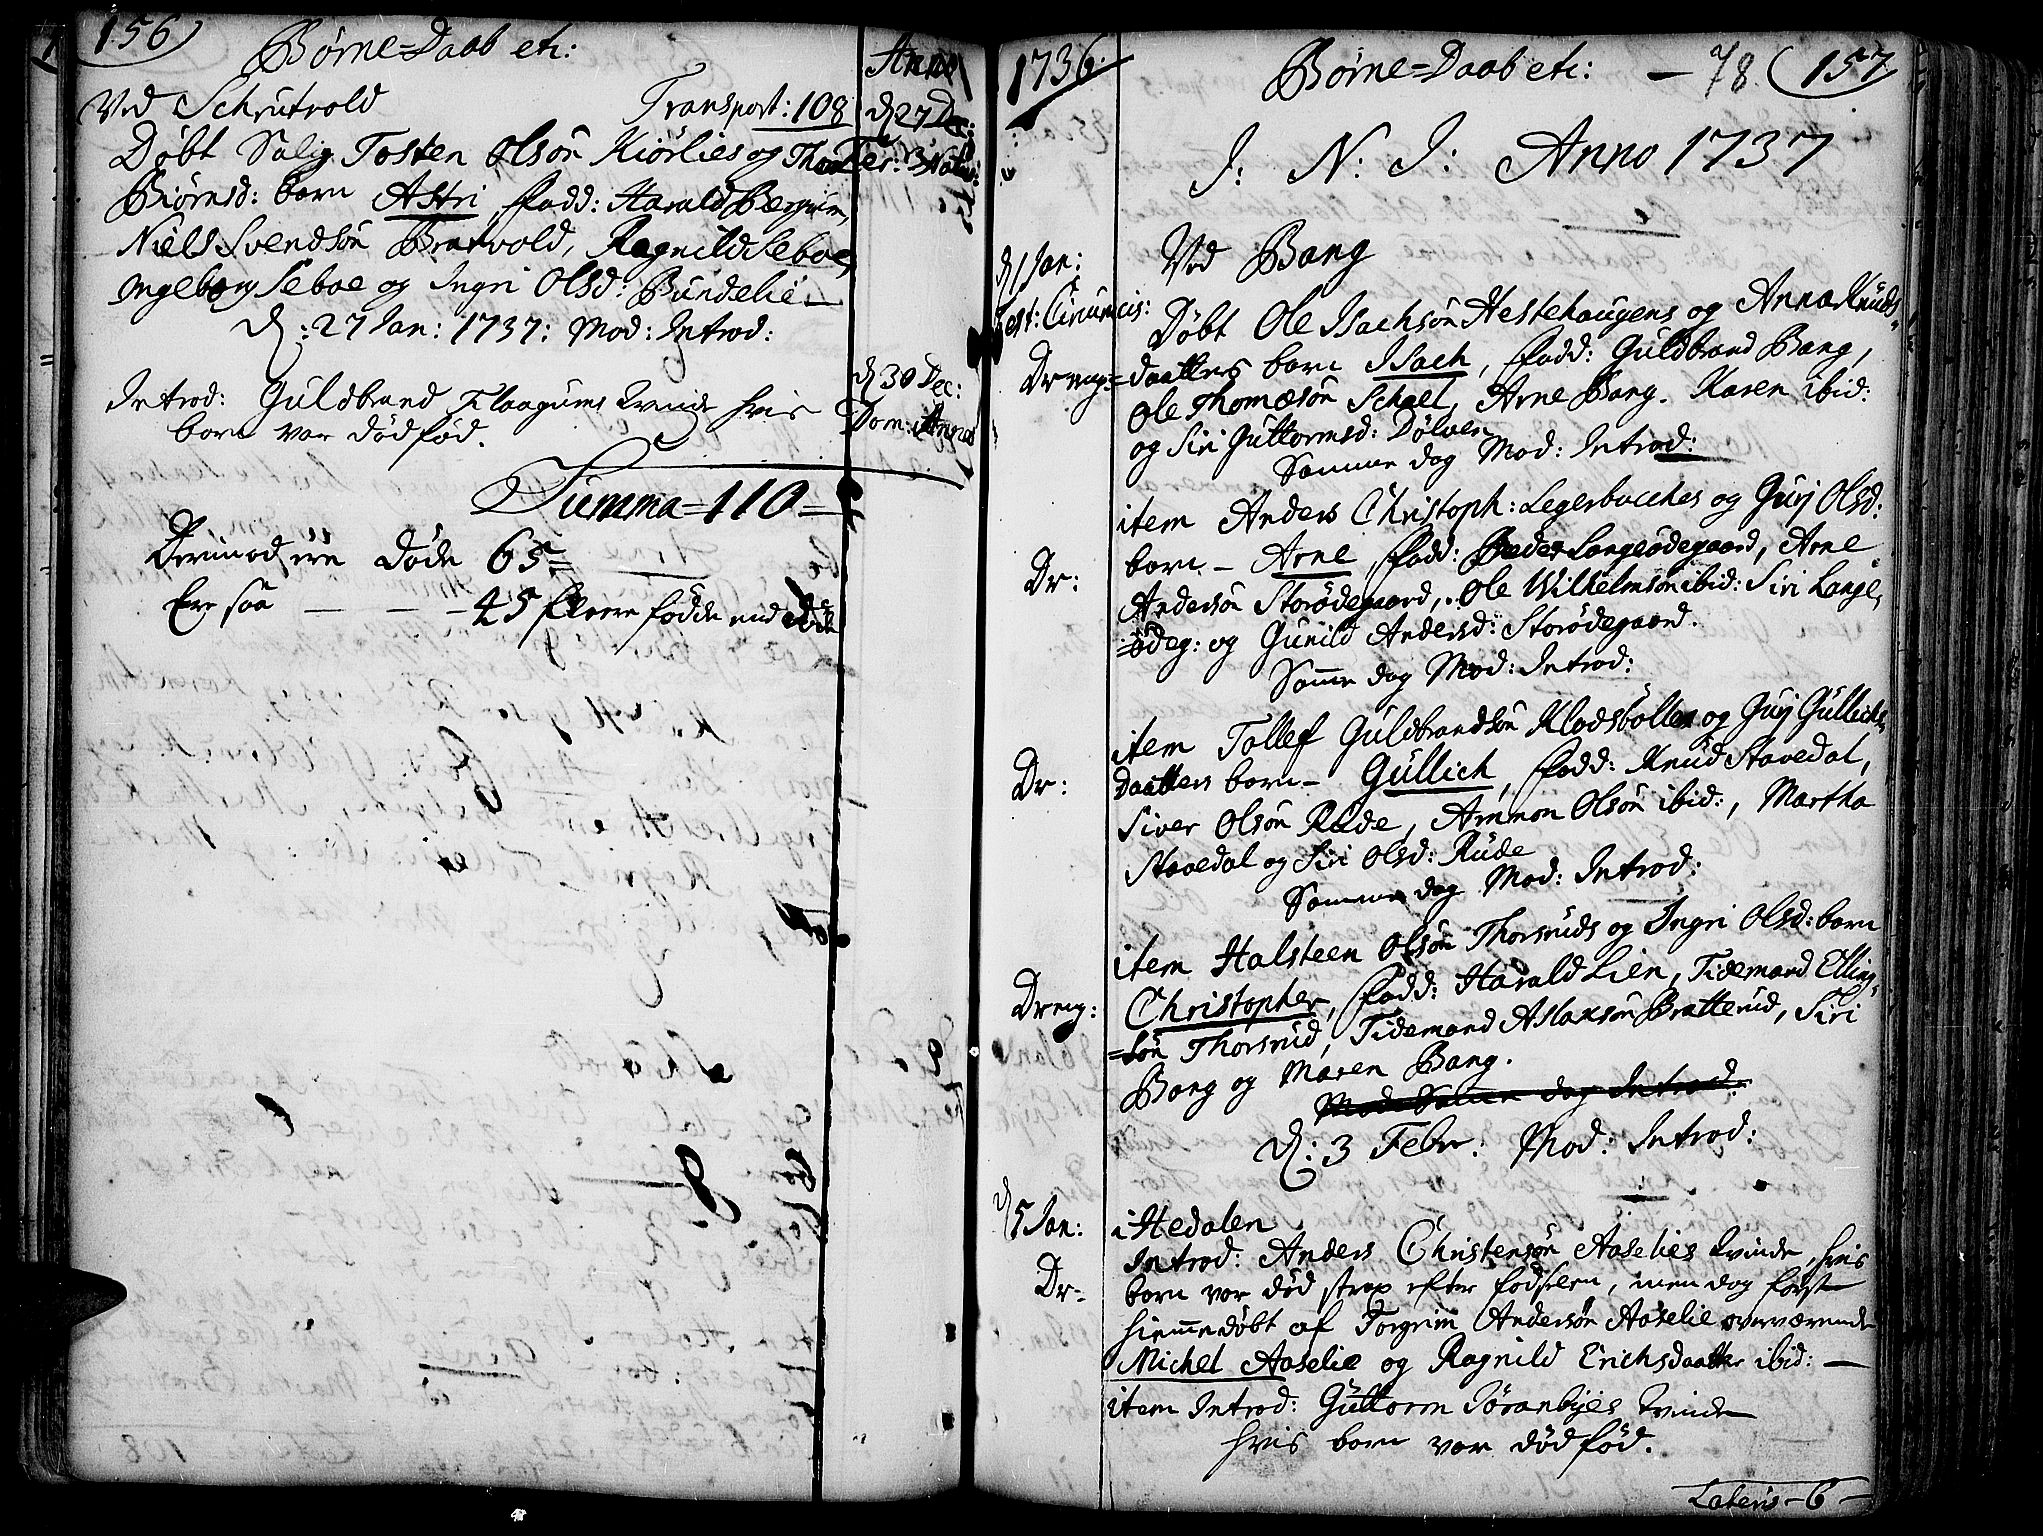 156
Børne=Daab etc:
Anno
Ved Schrutvold Transport: 108
d 27 Dec:
Fer: 3 Nativ:
Døbt Salig Tosten Olsøn Kiørlies og
Biørnsd: barn Astri, fadd: Harald Berguim,
Niels Svendsøn Bratvold, Ragnild Seboe,
Ingeborg Seboe og Ingri Olsd: Bundelie.
D: 27 Jan: 1737: Mod: Introd:
d 30 Dec:
Introd: Guldbrand Flaagums Kvinde hvis
barn var dødfød.
Summa = 110 =
Derimod ere døde 65 =
Er saa - - - 45 fleere fødde end døde
1736.
Børne=Daab etc: — 78. 157
J: N: J: Anno 1737
d 1 Jan:
Fest: Circumcis:
Ved Bang
Døbt Ole Isachsøn Hestehaugens og Anna Knuds=
Dreng= daatters barn Isach, fadd: Guldbrand Bang,
Ole Thomæsøn Schaet, Arne Bang. Karen ibid:
og Siri Guttormsd: Dølven
Samme dag Mod: Introd:
item Anders Christoph: Legerbacches og Gurj Olsd:
Dr: barn - Arne, fadd: Peder Langeødegaard, Arne
Andersøn Storødegaard, Ole Wilhelmsøn ibid: Siri Lange=
=ødeg: og Gunild Andersd: Storødegaard.
Samme dag Mod: Introd:
item Tollef Guldbrandsøn Klodsbøttes og Gurj Gullichs
Dr: Daatters barn - Gullich, fadd: Knud Stavedal,
Siver Olsøn Rude, Ammon Olsøn ibid:, Martha
Stavedal og Siri Olsd: Rude
Samme dag Mod: Introd:
item Halsteen Olsøn Thorsruds og Ingri Olsd: barn
Dreng: Christopher, fadd: Harald Lien, Tidemand Elling=
=søn Thorsrud, Tidemand Aslaxsøn Bratterud, Siri
Bang og Maren Bang.
Mod: Samme dag Introd:
D: 3 Febr: Mod: Introd:
d 5 Jan:
i Hedalen
Introd: Anders Christensøn Aaselies Kvinde, hvis
Dr= barn var død strax efter fødselen, men dog først
hiemmedøbt af Torgrim Andersøn Aaselie overværende
Michel Aaselie og Ragnild Erichsdaatter ibid: —
item Introd: Guttorm Jøranbyes Kvinde
hvis barn var dødfød.
Lateris - 6 -